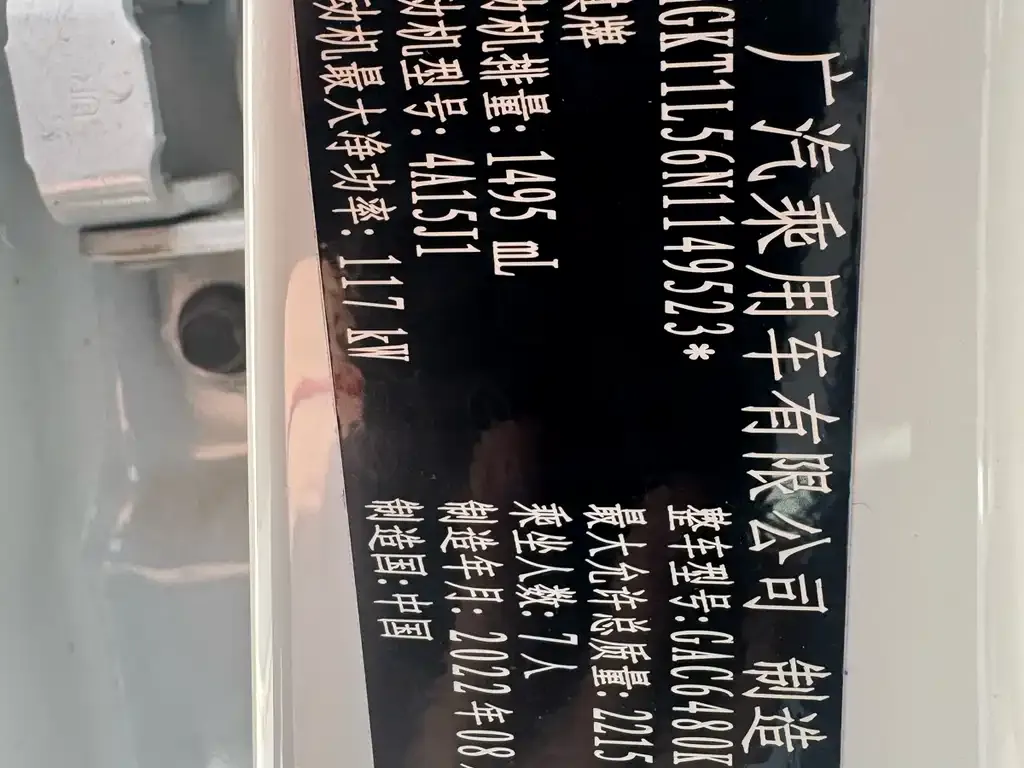 广汽乘用车有限公司 制造
GKT1L56N1149523*
整车型号:GAC6480K
棋牌
最大允许总质量:2215
动机排量:1495 mL
乘坐人数:7人
动机型号:4A15J1
制造年月:2022年08
动机最大净功率:117 kW
制造国:中国